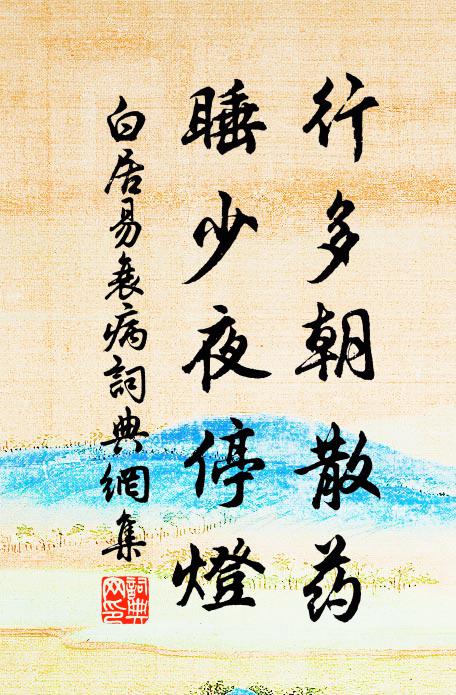 行多朝散药
睡少夜停燈
白居易衰病詞典網集
詞典网印